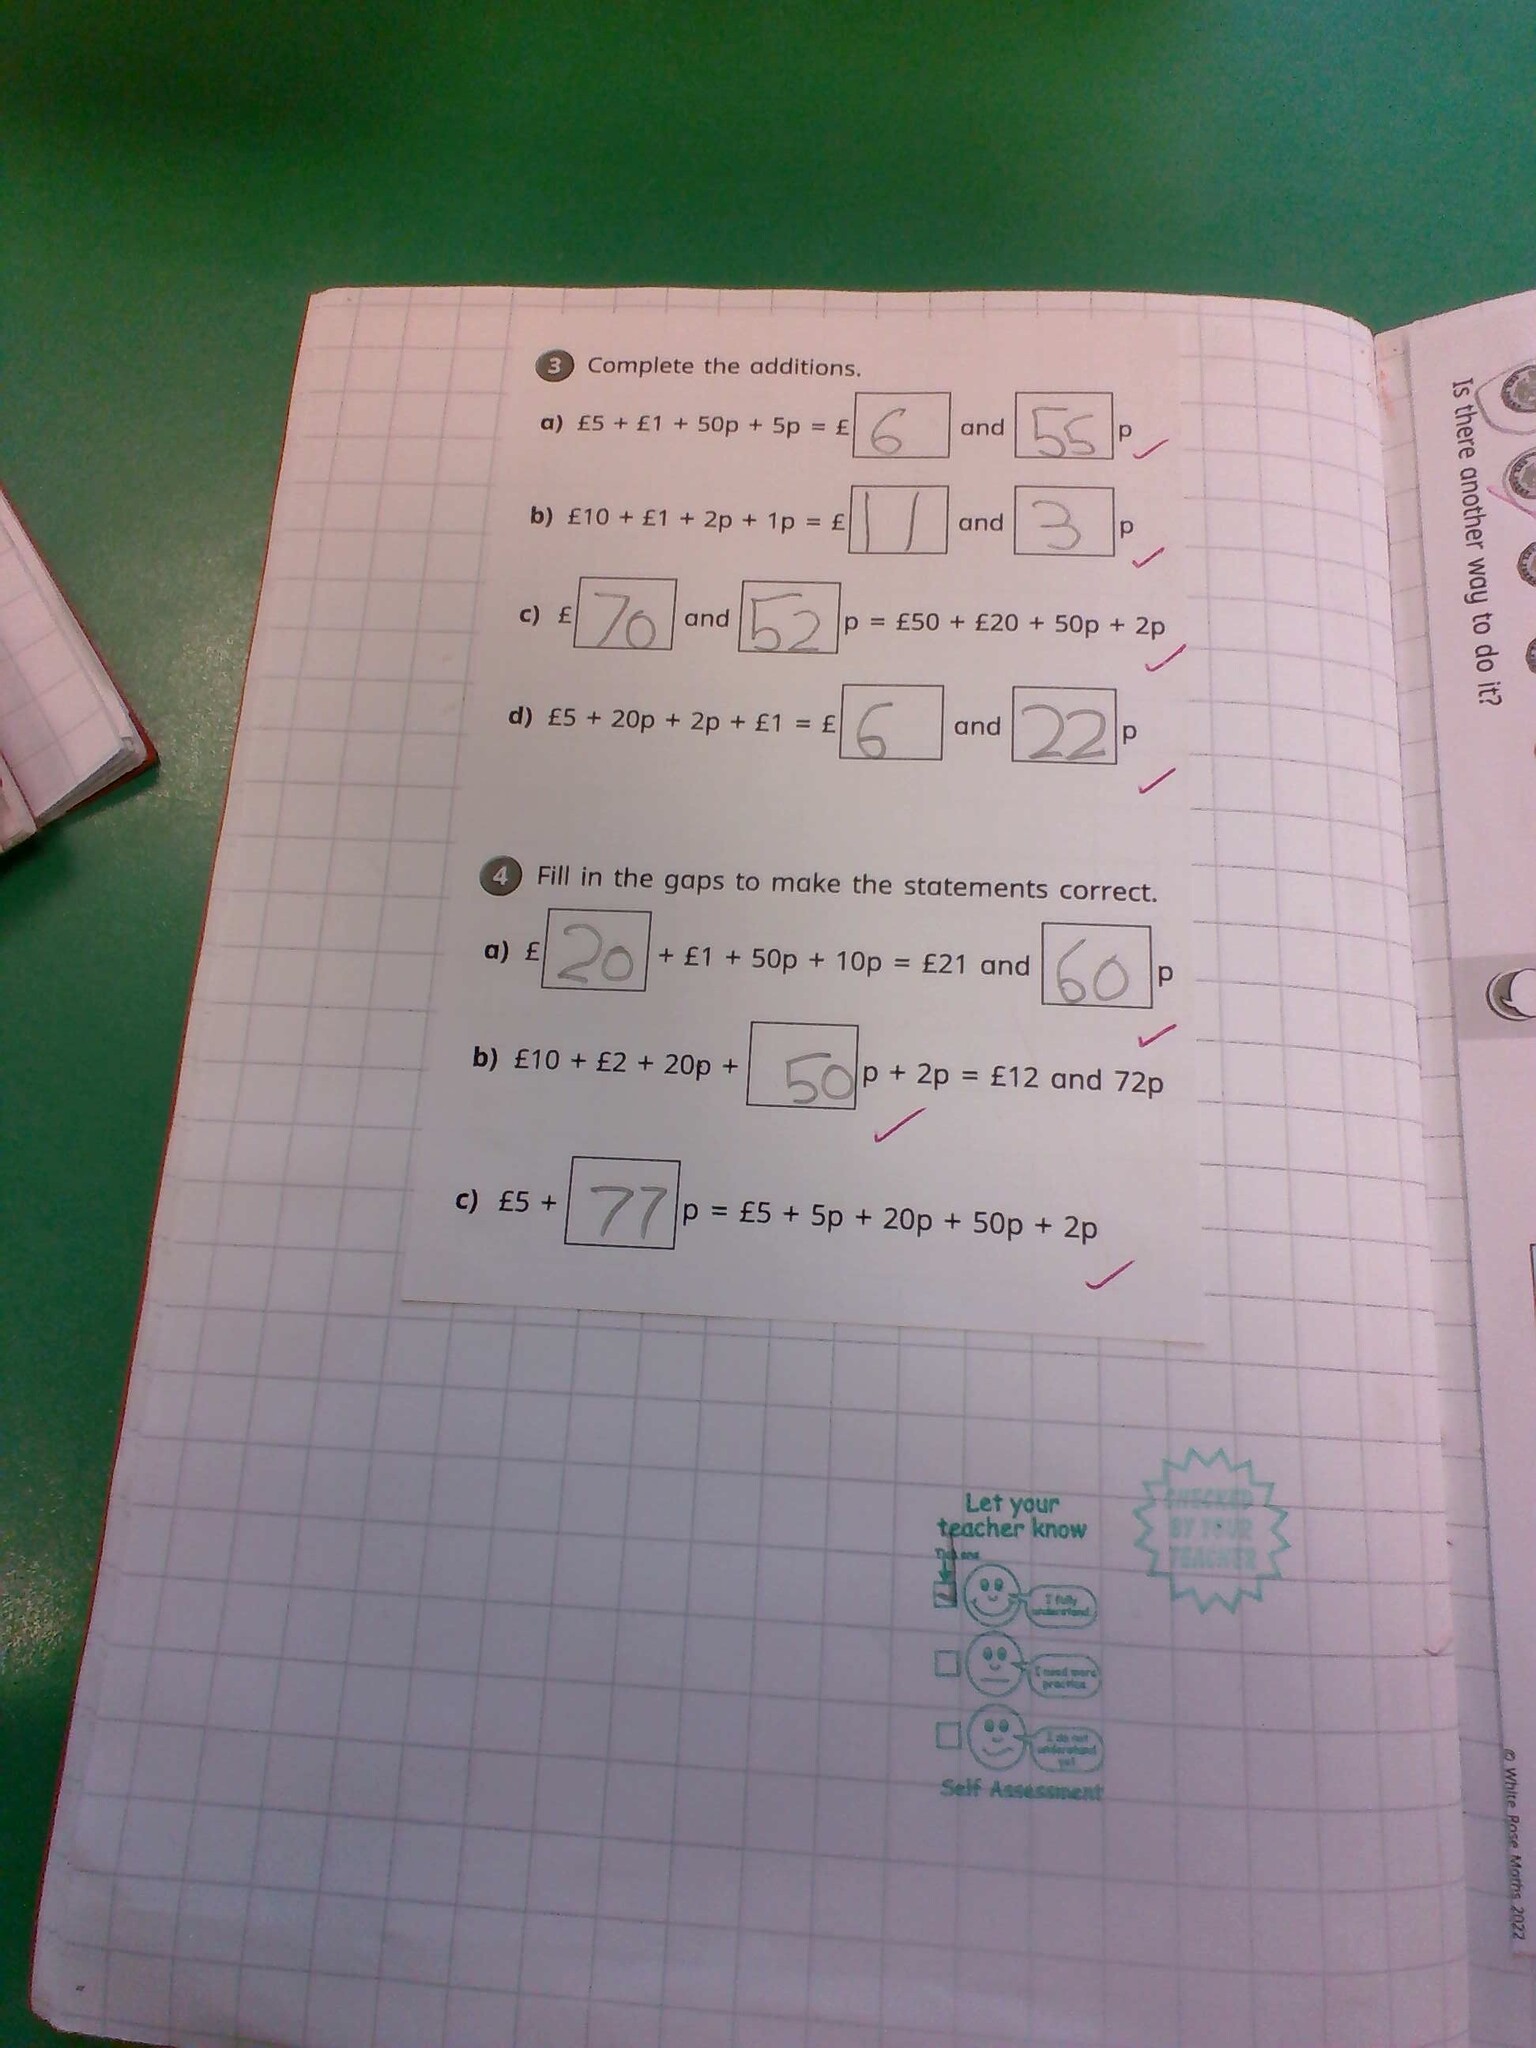 3 Complete the additions.
a) £5 + £1 + 50p + 5p = £ 6 and 55 p
b) £10 + £1 + 2p + 1p = £ 11 and 3 p
c) £ 70 and 52 p = £50 + £20 + 50p + 2p
d) £5 + 20p + 2p + £1 = £ 6 and 22 p
4 Fill in the gaps to make the statements correct.
a) £ 20 + £1 + 50p + 10p = £21 and 60 p
b) £10 + £2 + 20p + 50 p + 2p = £12 and 72p
c) £5 + 77 p = £5 + 5p + 20p + 50p + 2p
Let your
teacher know
I fully
understand
I need more
practice
I do not
understand
yet
Self Assessment
CHECKED
BY YOUR
TEACHER
Is there another way to do it?
© White Rose Maths 2022